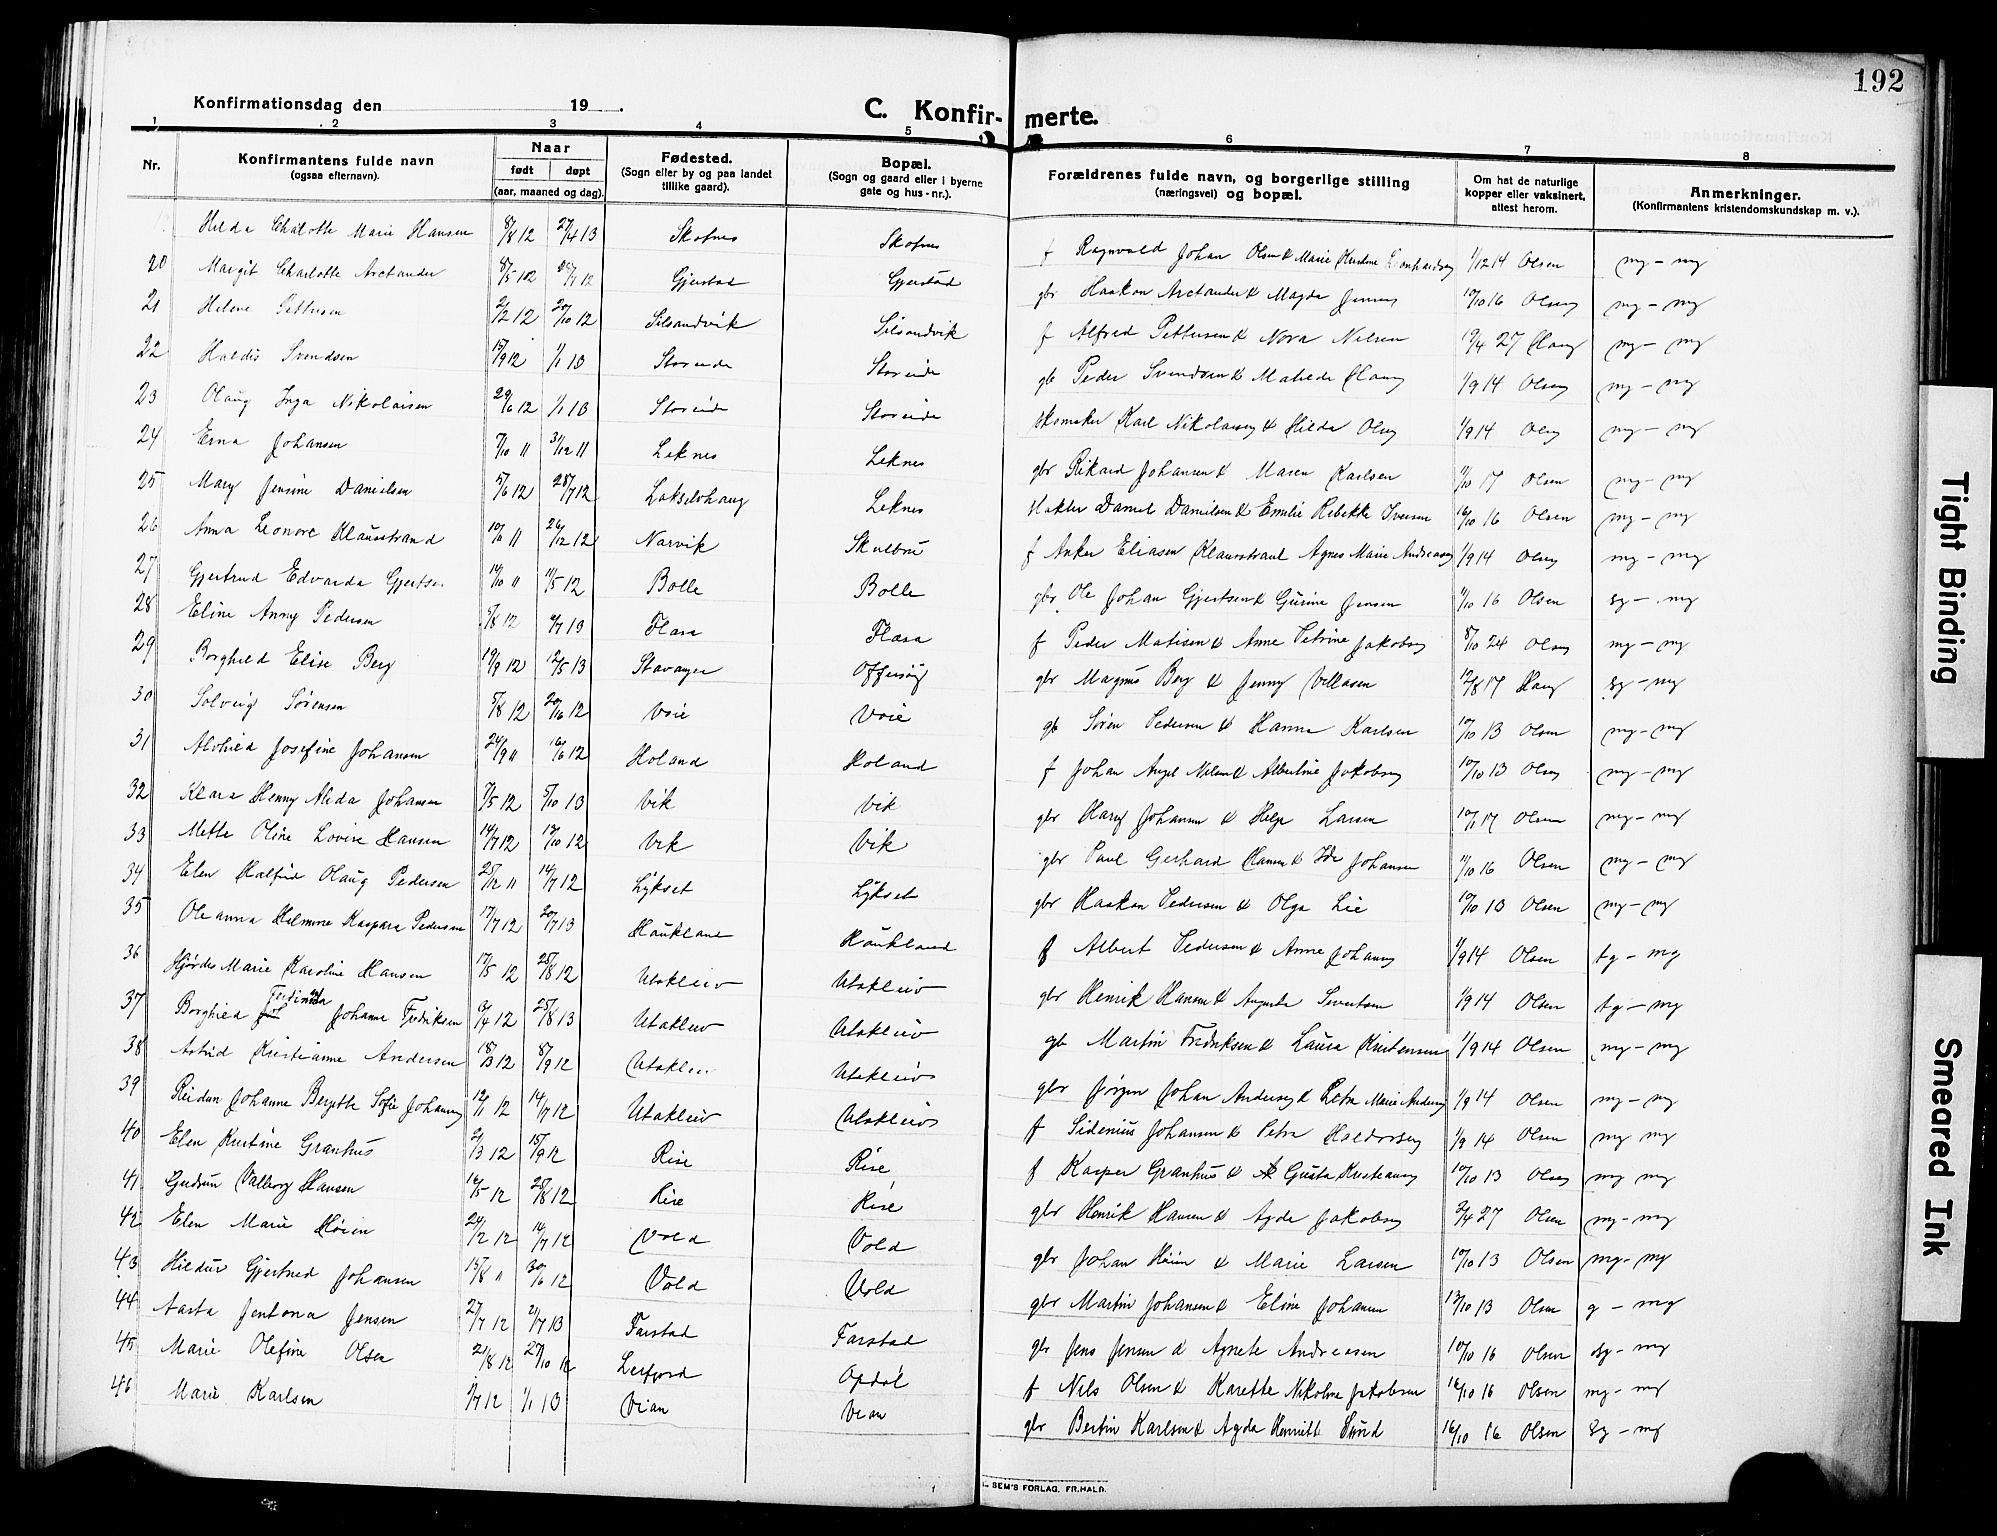 192
Konfirmationsdag den 19 .
C. Konfir- merte.
1 2 3 4 5 6 7 8
Nr. Konfirmantens fulde navn (ogsaa efternavn). Naar født døpt (aar, maaned og dag). Fødested. (Sogn eller by og paa landet tillike gaard). Bopæl. (Sogn og gaard eller i byerne gate og hus-nr.). Forældrenes fulde navn, og borgerlige stilling (næringsvei) og bopæl. Om hat de naturlige kopper eller vaksinert, attest herom. Anmerkninger. (Konfirmantens kristendomskundskap m. v.).
Hilda Charlotte Marie Hansen 8/8 12 27/4 13 Skotnes Skotnes f Ragnvald Johan Olsen & Marie 1/12 14 Olsen mg - mg
20 Margit Charlotte Arctander Gjerstad Gjerstad gbr Haakon Arctander & Magda Jensen 10/10 16 Olsen mg - mg
21 Helene Pettersen 2/2 12 20/10 12 Silsandvik Silsandvik f Alfred Pettersen & Nora Nilsen 19/4 27 Haug mg - mg
22 Haldis Svendsen 15/9 12 1/1 13 Storeide Storeide gb Peder Svendsen & Mathilde Haug 1/9 14 Olsen mg - mg
23 Olaug Inga Nikolaisen 29/6 12 1/1 13 Storeide Storeide skomaker Karl Nikolaisen & Hilda Olsen 1/9 14 Olsen mg - mg
24 Erna Johansen 7/10 11 31/12 11 Leknes Leknes gbr Rikard Johansen & Maren Karlsen 11/10 17 Olsen mg - mg
25 Mary Jensine Danielsen 5/6 12 28/7 12 Lakselvhaug Leknes Daniel Danielsen & Emilie Rebekke Iversen 16/10 16 Olsen mg - mg
26 Anna Leonore Klausstrand 26/12 12 Narvik Skulbru f Anker Eliasen Klausstrand Agnes Marie Andreasen 1/9 14 Olsen mg - mg
27 Gjertrud Edvarda Gjertse. 14/10 11 11/5 12 Bolle Bolle gbr Ole Johan Gjertsen & Gurine Jensen 11/10 16 Olsen sg - mg
28 Eline Anny Pedersen 5/8 12 Flasa Flasa f Peder Matisen & Anne Petrine Jakobsen 8/10 24 Olsen mg - mg
29 Borghild Elise Berg 19/9 12 12/5 13 Stavanger Offersøy gbr Magnus Berg & Jenny 12/8 17 Haug sg - mg
30 Solveig Sørensen 5/8 12 Voie Voie gb Søren Pedersen & Hanna Karlsen 10/10 13 Olsen mg - mg
31 Alvhild Josefine Johansen 24/9 11 16/6 12 Holand Holand f Johan Angel Nilsen & Albertine Jakobsen 10/10 13 Olsen mg - mg
32 Klara Henny Alida Johansen 7/5 12 5/10 13 Vik Vik gbr Harry Johansen & Helga Larsen 17 Olsen mg - mg
33 Mette Oline Lovise Hansen 14/7 12 17/10 12 Vik Vik gbr Paul Gerhard Hansen & Ida Johansen 11/10 16 Olsen mg - mg
34 Elen Halfrid Olaug Pedersen 25/12 11 14/7 12 Lykset Lykset gbr Haakon Pedersen & Olga Lie 10/10 13 Olsen mg - mg
35 Oleanna Hilmine Kaspara Pedersen 17/7 12 20/7 13 Haukland Haukland f Albert Pedersen & Anne Johansen 1/9 14 Olsen tg - mg
36 Hjørdis Marie Karoline Hansen 17/5 12 25/8 12 Utakleiv Utakleiv gbr Henrik Hansen & Augusta Sivertsen 1/9 14 Olsen tg - mg
37 Borghild Ferdinanda Johanne Fredriksen 25/8 13 Utakleiv Utakleiv gb Martin Fredriksen & Laura Kristensen 1/9 14 Olsen mg - mg
38 Astrid Kristianne Andersen 18/3 12 8/9 12 Utakleiv Utakleiv gbr Jørgen Johan Andersen & Petra Marie Andersen 1/9 14 Olsen mg - mg
39 Reidun Johanne Bergitte Sofie Johansen 12/1 12 14/7 12 Utakleiv Utakleiv f Sidenius Johansen & Petra Haldorsen 1/9 14 Olsen mg mg
40 Elen Kristine Granhus 2/3 12 15/9 12 Rise Rise f Kasper Granhus & Gusta Kristiansen 10/10 13 Olsen mg mg
41 Gudrun Valborg Hansen 16/5 12 25/8 12 Rise Rise gbr Henrik Hansen & Agda Jakobsen 2/4 27 Olsen mg - mg
42 Elen Marie Høien 24/2 12 14/7 12 Vold Vold gbr Johan Høien & Marie Larsen 10/10 13 Olsen mg - mg
43 Hildur Gjertrud Johansen 15/8 11 30/6 12 Vold Vold gbr Martin Johansen & Eline Johansen 17/10 13 Olsen g - mg
44 Aasta Jentona Jensen 27/7 12 21/7 13 Farstad Farstad gbr Jens Jensen & Agnete Andreasen 10/10 16 Olsen sg - mg
45 Marie Olefine Olsen 21/8 12 27/10 12 Leirfjord Opdøl f Nils Olsen & Karette Nikoline Jakobsen 16/10 16 Olsen mg - mg
46 Marie Karlsen 1/7 12 1/1 13 Vian Vian gbr Bertin Karlsen & Agda Henriette Sund 16/10 16 Olsen sg - mg
SEM'S FORLAG, FR.HALD.
Tight Binding
Smeared Ink